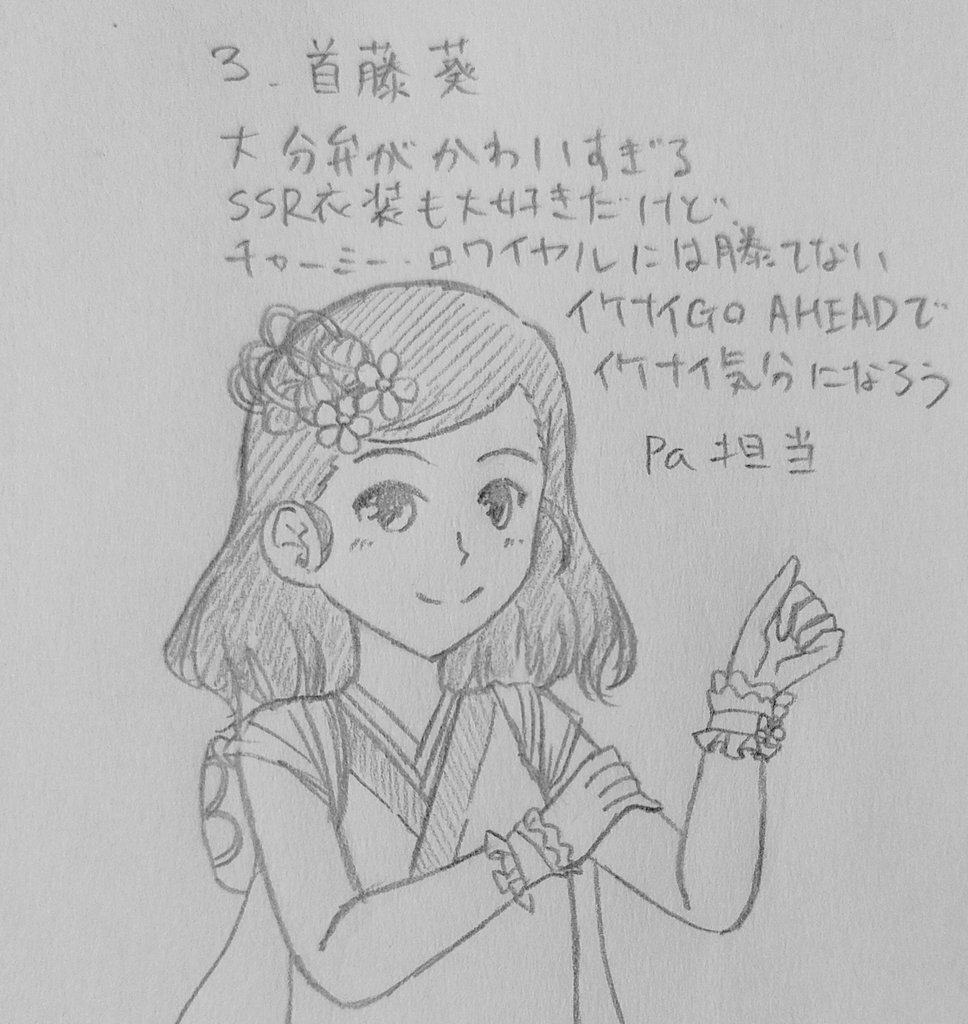 3. 首藤 葵
大分弁がかわいすぎる
SSR衣装も大好きだけど
チャーミー・ロワイヤルには勝てない
イケナイGO AHEADで
イケナイ気分になろう
Pa担当